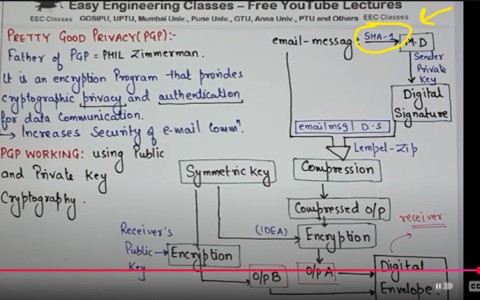 Easy Engineering Classes – Free YouTube Lectures
EEC Classes GGSIPU, UPTU, Mumbai Univ., Pune Univ., GTU, Anna Univ., PTU and Others EEC Classes
PRETTY GOOD PRIVACY(PGP):
Father of PGP = PHIL Zimmerman.
It is an encryption Program that provides
cryptographic privacy and authentication
for data communication.
→ Increases Security of e-mail commn.
PGP WORKING: using Public
and Private Key
Cryptography.
email-message
SHA-1
M.D
Sender
Private
Key
Digital
Signature
email msg D.S
Lempel-Zip
Compression
Symmetric key
Compressed o/p
receiver
Receiver's
Public
Key
(IDEA)
Encryption
Encryption
O/p B
O/p A
Digital
Envelope.